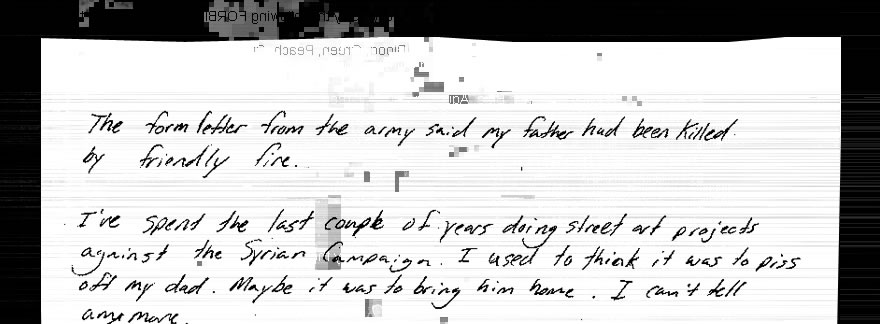 The form letter from the army said my father had been killed
by friendly fire.
I've spent the last couple of years doing street art projects
against the Syrian Campaign. I used to think it was to piss
off my dad. Maybe it was to bring him home. I can't tell
anymore.